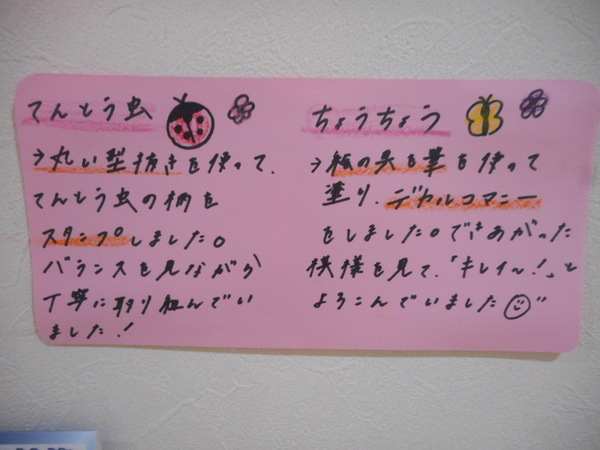 てんとう虫
→丸い型抜きを使って、
てんとう虫の柄を
スタンプしました。
バランスを見ながら
丁寧に取り組んでい
ました!
ちょうちょう
→絵の具を筆を使って
塗り、デカルコマニー
をしました。できあがった
模様を見て、「キレイ〜!」と
よろこんでいました